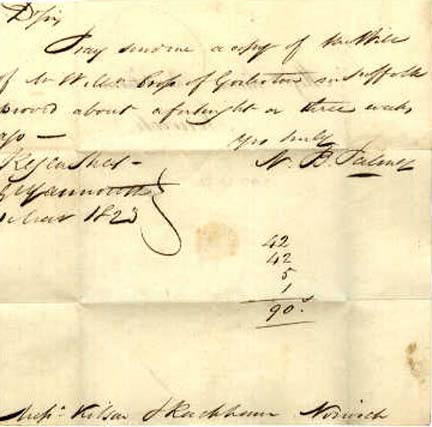 D Sir
Pray send me a copy of the Will
of Mr Willm Cross of Gorleston in Suffolk
proved about a fortnight or three weeks
ago —
Yrs truly
N. B. Palmer
Yarmouth
Mar 1823
42
42
5
1
90
Messrs Kitson & Rackham Norwich